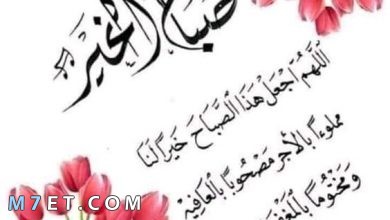 صباح الخير
اللهم اجعل هذا الصباح خيرا لنا
مملوءا بالأجر مصحوبا بالعافيه
ومختوما
M7ET.COM